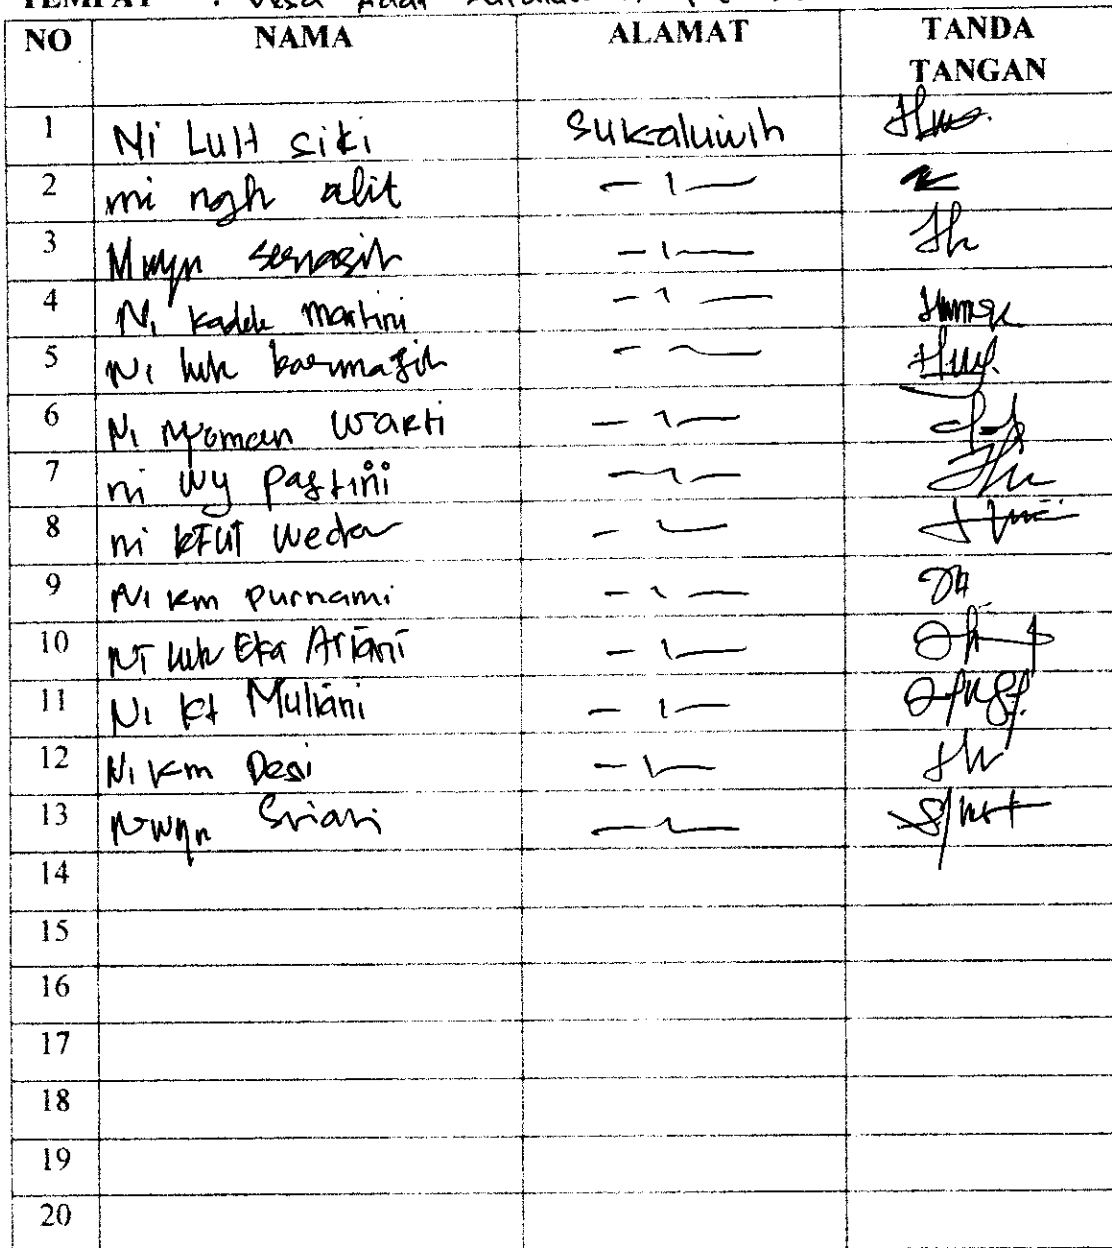 TEMPAT : Desa Adat
NO NAMA ALAMAT TANDA TANGAN
1 Ni LuH siki Sukaluwih
2 ni ngh alit — 1 —
3 — 1 —
4 Ni Kadek Martini — 1 —
5 Ni luh karmasih — ~ —
6 Ni Nyoman Warti — 1 —
7 ni wy Pastini — 1 —
8 ni kTUT Weda — 1 —
9 Ni km Purnami — 1 —
10 Ni luh Eka Ariani — 1 —
11 Ni kt Muliani — 1 —
12 Ni km Desi — 1 —
13 N wyn Sriani — 1 —
14
15
16
17
18
19
20